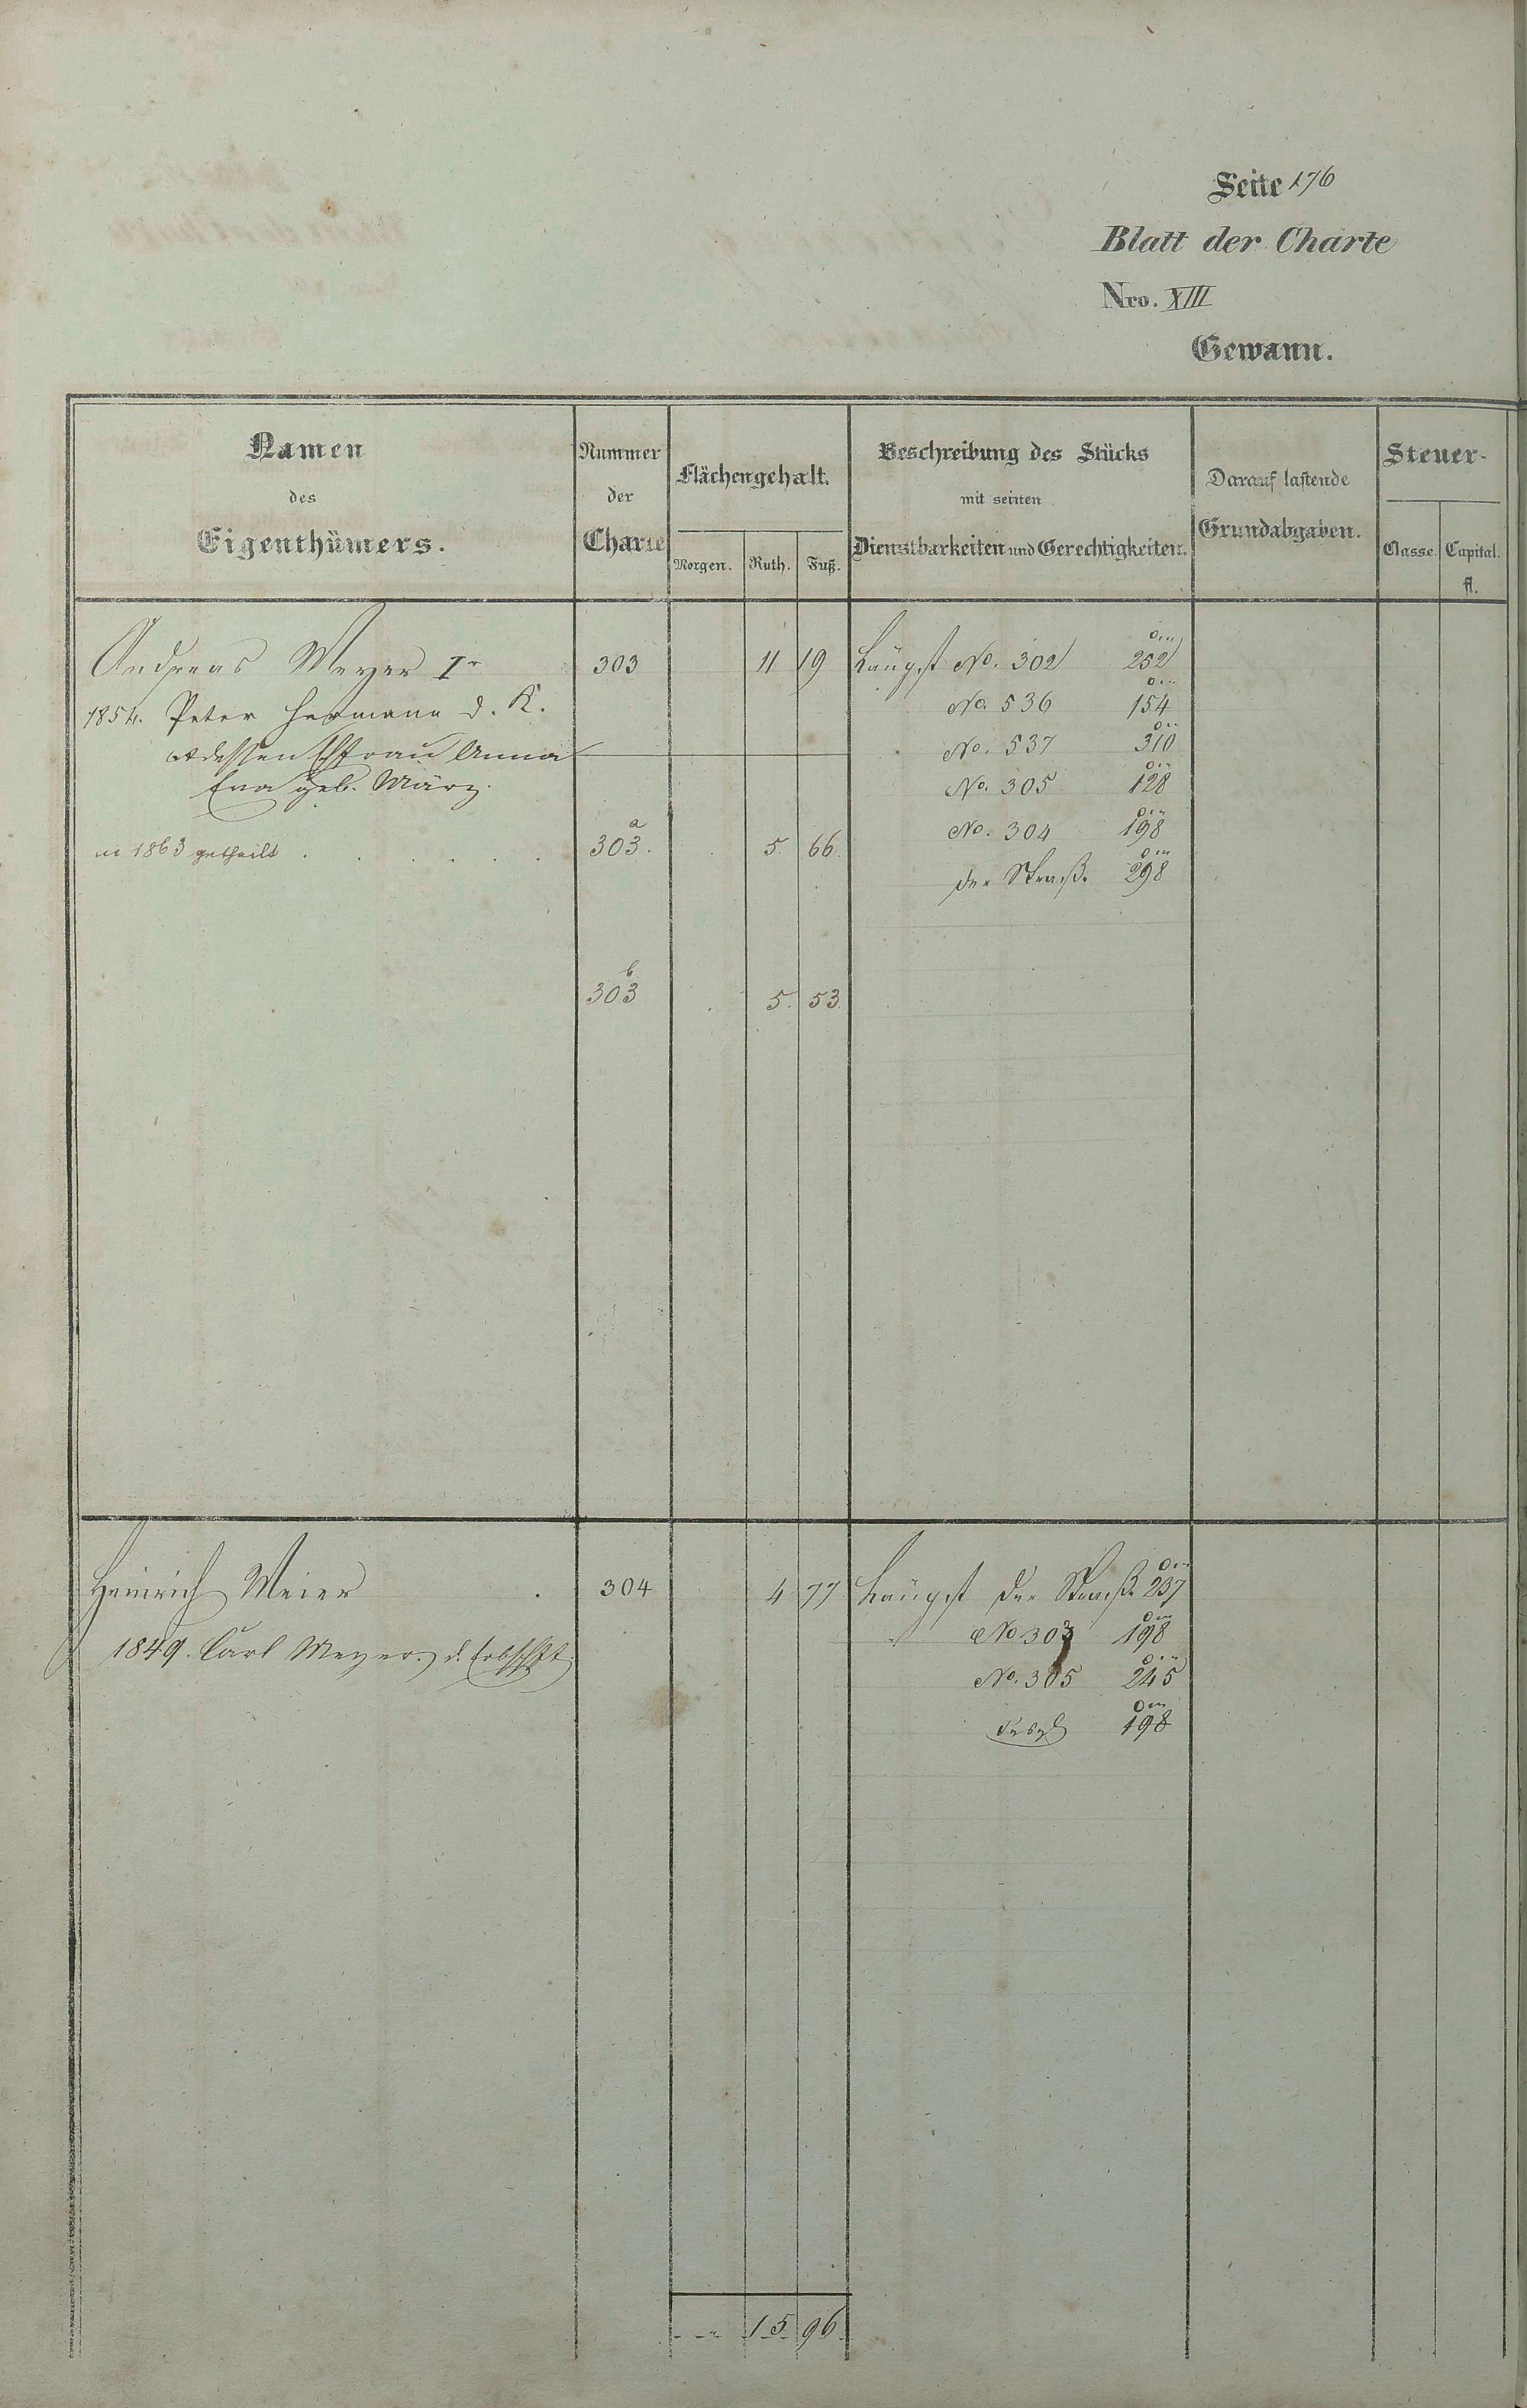 Seite 176
Blatt der Charte
Nro. XIII
Gewann.
Namen des Eigenthümers.
Nummer der Charte
Flächengehalt.
Morgen. Ruth. Fuß.
Beschreibung des Stücks mit seinen Dienstbarkeiten und Gerechtigkeiten.
Darauf lastende Grundabgaben.
Steuer-
Classe. Capital. fl.
Andreas Meyer Ir 303 11 19 Längst No. 302 252
1854. Peter Hermann d. K. No. 536 154
dessen Ehfrau Anna No. 537 310
Eva geb. März. No. 305 128
No. 304 198
in 1863 getheilt . . . . . . 303.a 5. 66.
der Straße 298
303b 5. 53.
Heinrich Meier . 304 4 77 Längst der Straße 237
No 303 198
1849. Carl Meyer. d. Erbschft.
No. 305 245
198
15 96